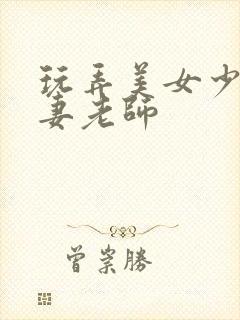 玩弄美女少
妻老師
曾崇勝